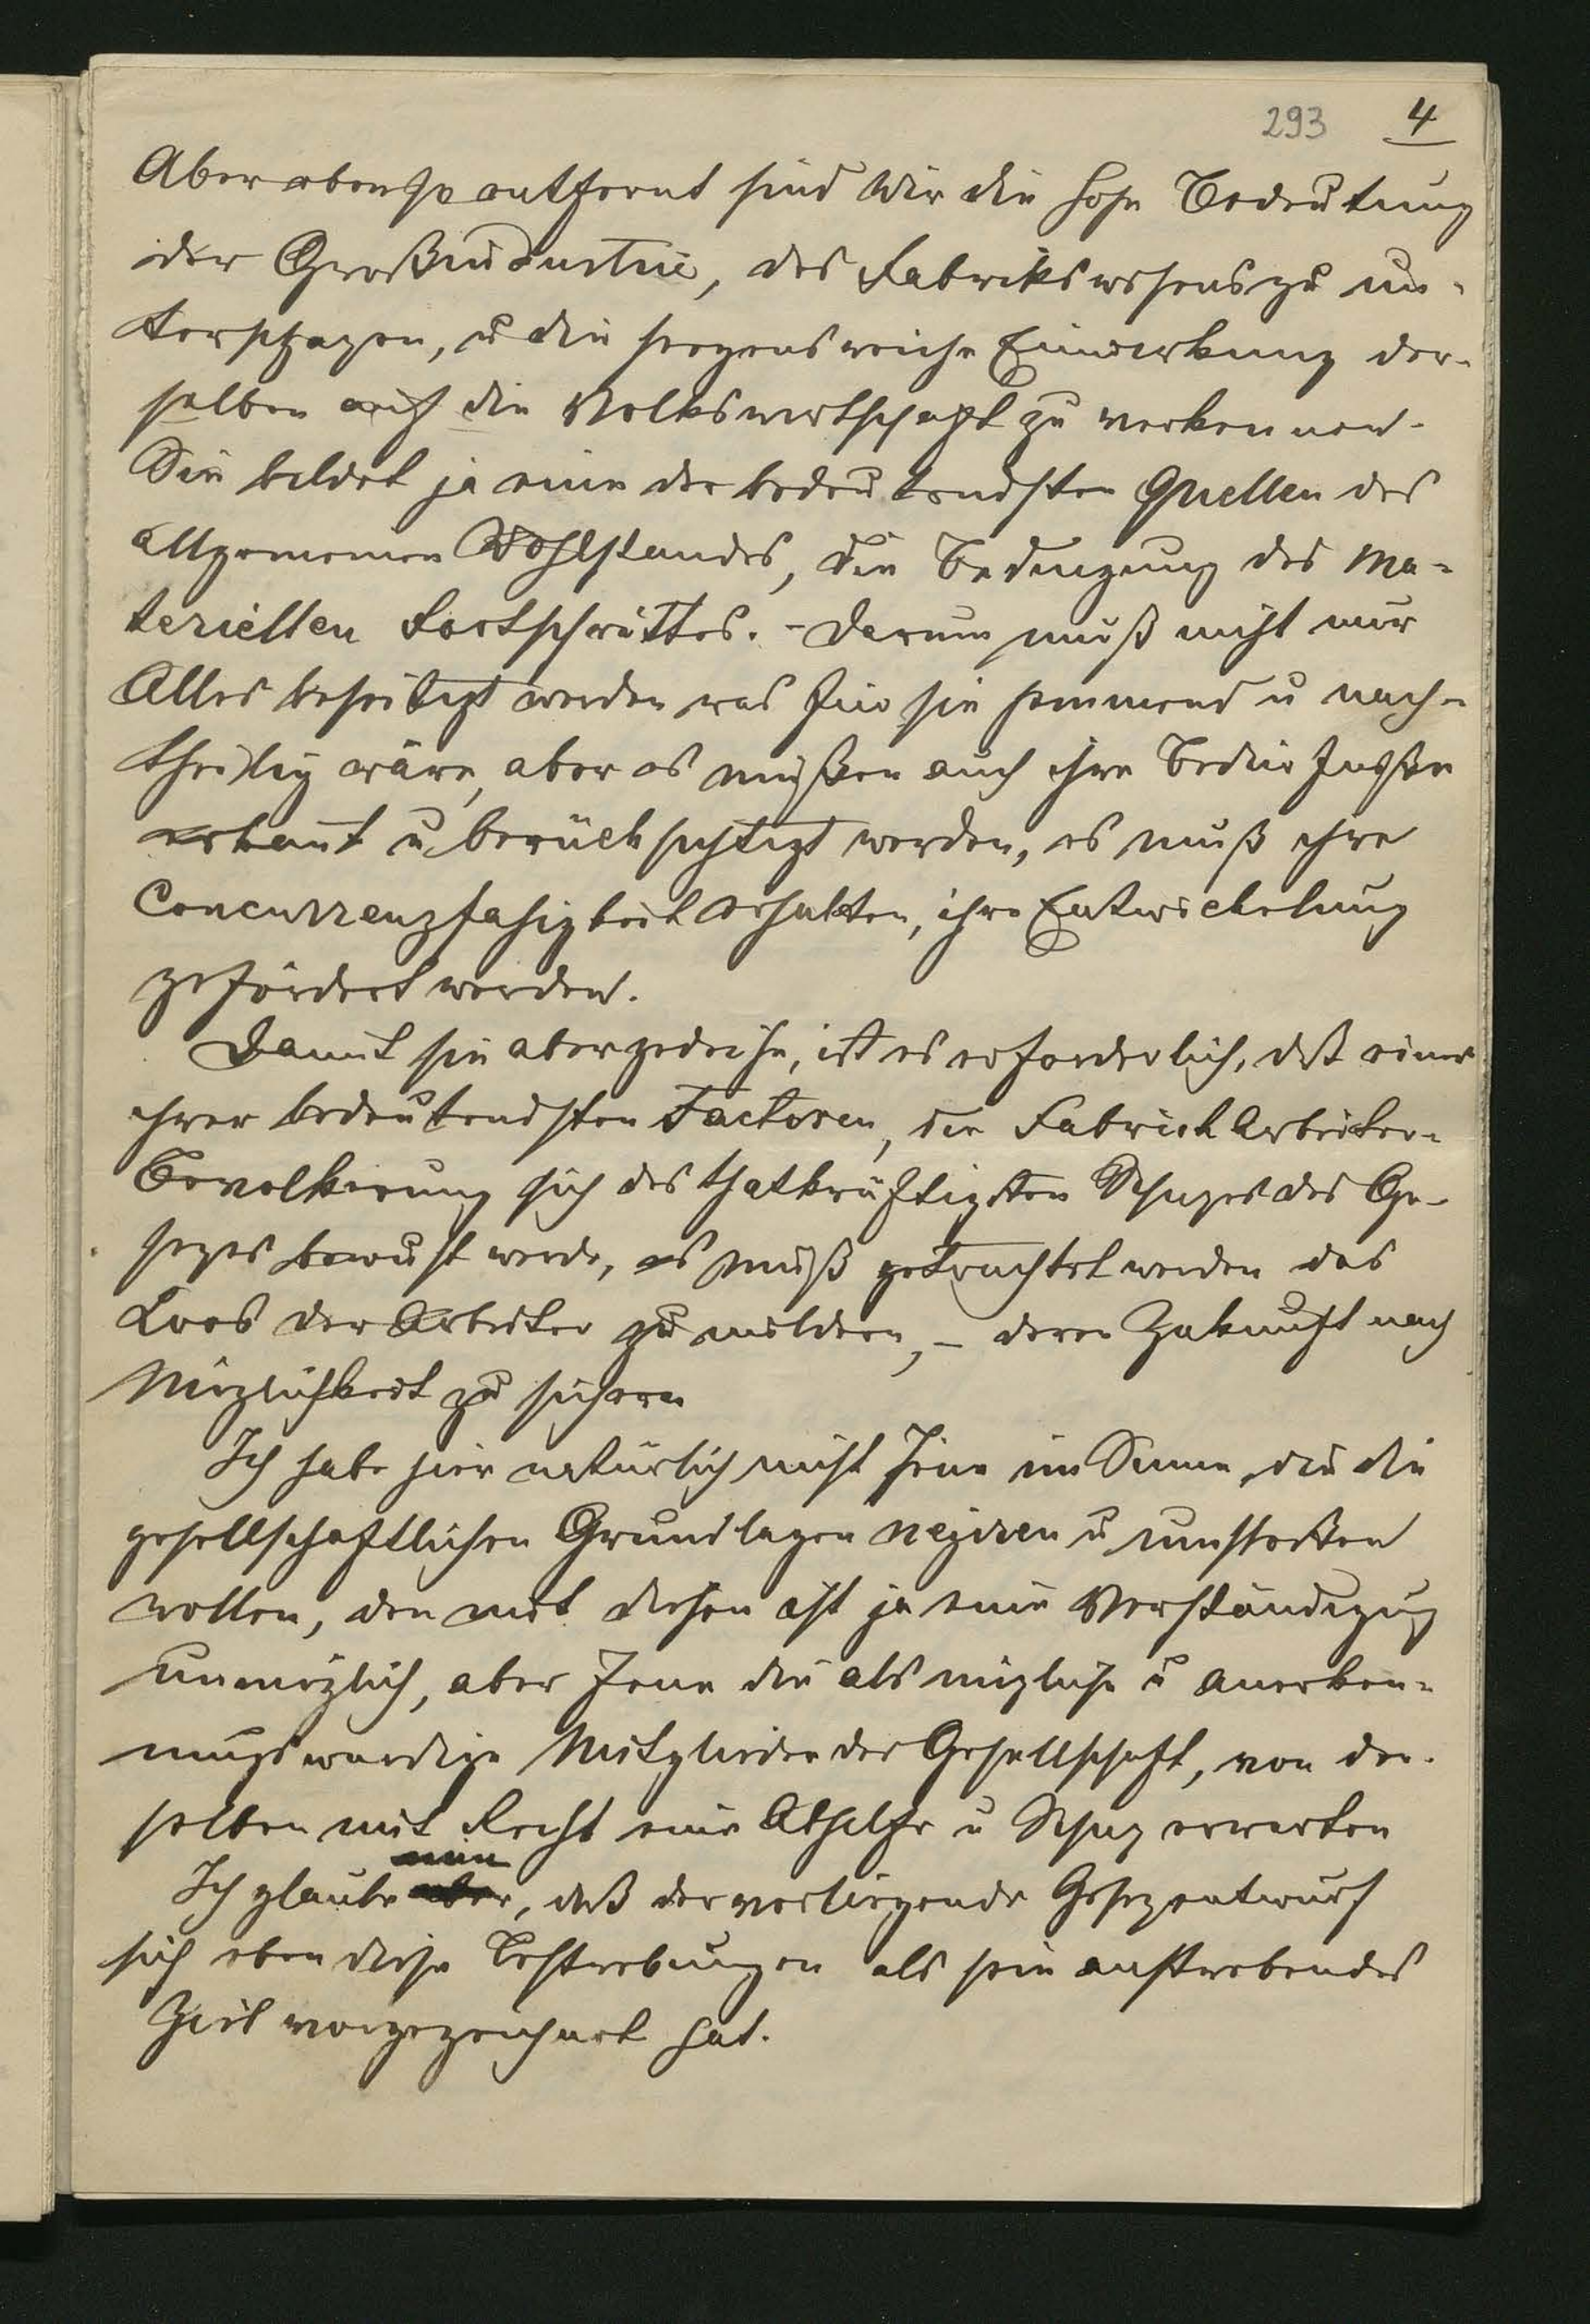 293 4
Aber ebenso entfernt sind Wir die hohe Bedeutung
der Großindustrie, des Fabrikswesens zu un-
terschäzen, u die segensreiche Einwirkung der-
selben auf die Volkswirtschaft zu verkennen.
Sie bildet ja eine der bedeutendsten Quellen des
allgemeinen Wohlstandes, die Bedingung des ma-
teriellen Fortschrittes. - Darum muß nicht nur
Alles beseitigt werden was für sie hemmend u nach-
theilig wäre, aber es müßen auch ihre Bedürfnisse
erkannt u berücksichtigt werden, es muß ihre
Concurrenzfahigkeit erhalten, ihre Entwickelung
gefördert werden.
Damit sie aber gedeihe, ist es erforderlich, daß einer
ihrer bedeutendsten Factoren, die Fabrick Arbeiter-
Bevolkerung sich des thatkräftigsten Schuzes des Ge-
sezes bewußt werde, es muß getrachtet werden das
Loos der Arbeiter zu mildern, - deren Zukunft nach
Möglichkeit zu sichern
Ich habe hier natürlich nicht Jene im Sinne, die die
gesellschaftlichen Grundlagen negiren u umstoßen
wollen, den mit diesen ist ja eine Verständigug
unmöglich, aber Jene die als nüzliche u anerken-
nungswürdige Mitglieder der Gesellschaft, von der-
selben mit Recht eine Abhilfe u Schuz erwarten
nun
Ich glaube aber, daß der vorliegende Gesezentwurf
sich eben diese Bestrebungen als sein anstrebendes
Ziel vorgezeichnet hat.